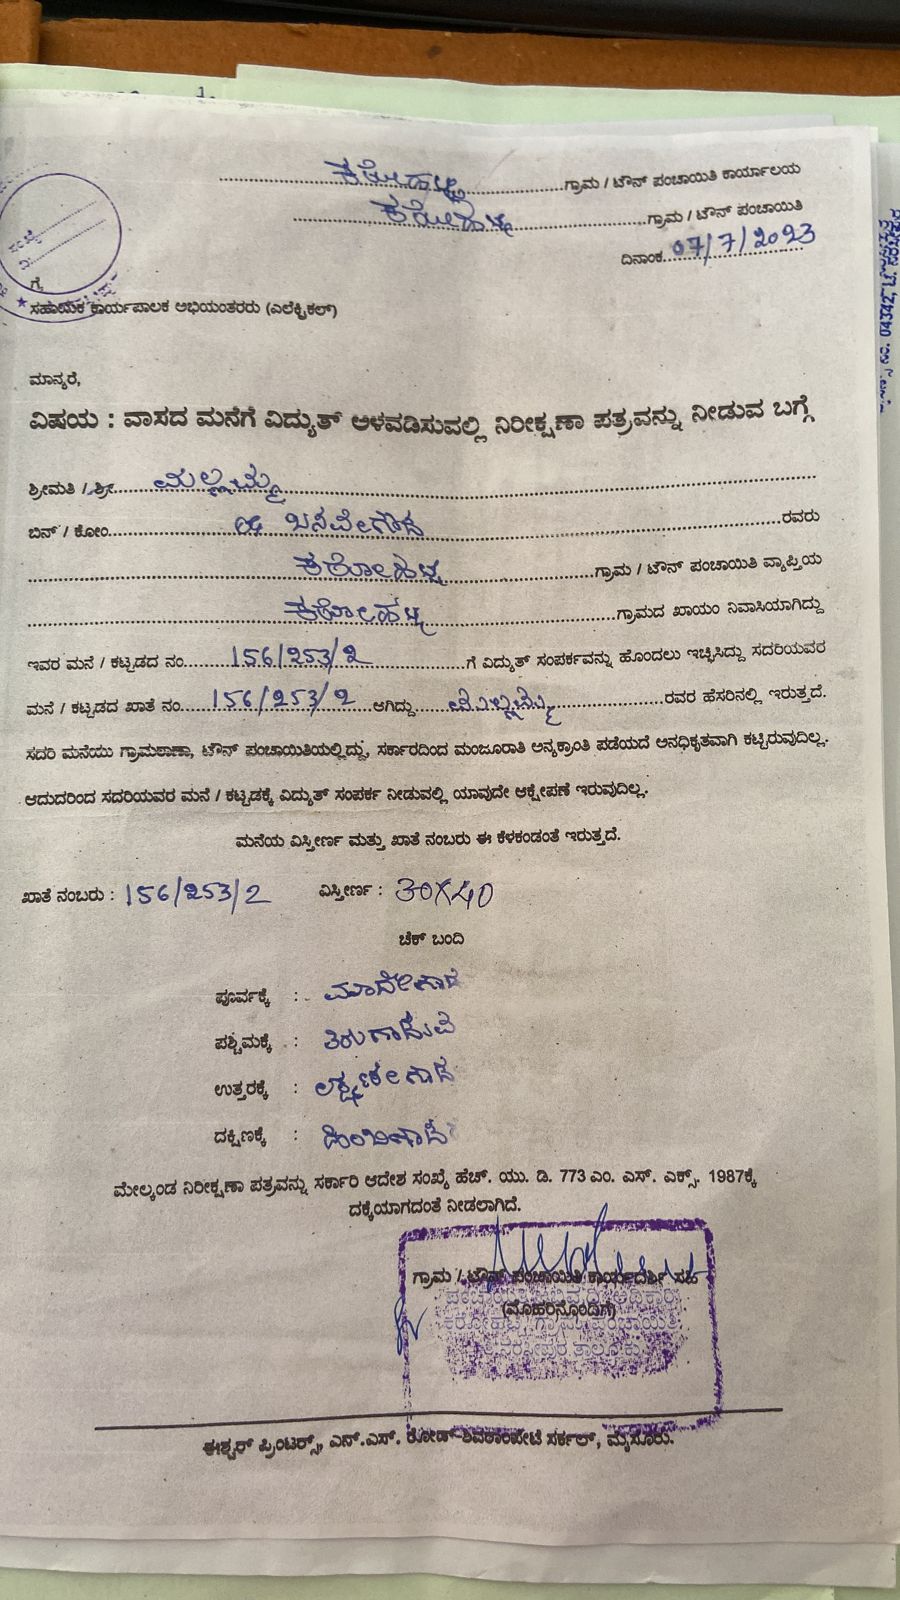 ಕರೋಹಟ್ಟಿ ಗ್ರಾಮ / ಟೌನ್ ಪಂಚಾಯಿತಿ ಕಾರ್ಯಾಲಯ
ಕರೋಹಟ್ಟಿ ಗ್ರಾಮ / ಟೌನ್ ಪಂಚಾಯಿತಿ
ದಿನಾಂಕ 07/7/2023
ಗೆ,
ಸಹಾಯಕ ಕಾರ್ಯಪಾಲಕ ಅಭಿಯಂತರರು (ಎಲೆಕ್ಟ್ರಿಕಲ್)
ಮಾನ್ಯರೆ,
ವಿಷಯ : ವಾಸದ ಮನೆಗೆ ವಿದ್ಯುತ್ ಅಳವಡಿಸುವಲ್ಲಿ ನಿರೀಕ್ಷಣಾ ಪತ್ರವನ್ನು ನೀಡುವ ಬಗ್ಗೆ
ಶ್ರೀಮತಿ / ಶ್ರೀ ಮಲ್ಲಮ್ಮ
ಬಿನ್ / ಕೋಂ ಬಸವೇಗೌಡ ರವರು
ಕರೋಹಟ್ಟಿ ಗ್ರಾಮ / ಟೌನ್ ಪಂಚಾಯಿತಿ ವ್ಯಾಪ್ತಿಯ
ಕರೋಹಟ್ಟಿ ಗ್ರಾಮದ ಖಾಯಂ ನಿವಾಸಿಯಾಗಿದ್ದು
ಇವರ ಮನೆ / ಕಟ್ಟಡದ ನಂ. 156/253/2 ಗೆ ವಿದ್ಯುತ್ ಸಂಪರ್ಕವನ್ನು ಹೊಂದಲು ಇಚ್ಛಿಸಿದ್ದು ಸದರಿಯವರ
ಮನೆ / ಕಟ್ಟಡದ ಖಾತೆ ನಂ. 156/253/2 ಆಗಿದ್ದು ಮಲ್ಲಮ್ಮ ರವರ ಹೆಸರಿನಲ್ಲಿ ಇರುತ್ತದೆ.
ಸದರಿ ಮನೆಯು ಗ್ರಾಮಠಾಣಾ, ಟೌನ್ ಪಂಚಾಯಿತಿಯಲ್ಲಿದ್ದು, ಸರ್ಕಾರದಿಂದ ಮಂಜೂರಾತಿ ಅನ್ಯಕ್ರಾಂತಿ ಪಡೆಯದೆ ಅನಧಿಕೃತವಾಗಿ ಕಟ್ಟಿರುವುದಿಲ್ಲ.
ಆದುದರಿಂದ ಸದರಿಯವರ ಮನೆ / ಕಟ್ಟಡಕ್ಕೆ ವಿದ್ಯುತ್ ಸಂಪರ್ಕ ನೀಡುವಲ್ಲಿ ಯಾವುದೇ ಆಕ್ಷೇಪಣೆ ಇರುವುದಿಲ್ಲ.
ಮನೆಯ ವಿಸ್ತೀರ್ಣ ಮತ್ತು ಖಾತೆ ನಂಬರು ಈ ಕೆಳಕಂಡಂತೆ ಇರುತ್ತದೆ.
ಖಾತೆ ನಂಬರು : 156/253/2 ವಿಸ್ತೀರ್ಣ : 30X40
ಚೆಕ್ ಬಂದಿ
ಪೂರ್ವಕ್ಕೆ : ಮಾದೇಗೌಡ
ಪಶ್ಚಿಮಕ್ಕೆ :
ಉತ್ತರಕ್ಕೆ :
ದಕ್ಷಿಣಕ್ಕೆ :
ಮೇಲ್ಕಂಡ ನಿರೀಕ್ಷಣಾ ಪತ್ರವನ್ನು ಸರ್ಕಾರಿ ಆದೇಶ ಸಂಖ್ಯೆ ಹೆಚ್. ಯು. ಡಿ. 773 ಎಂ. ಎಸ್. ಎಕ್ಸ್. 1987ಕ್ಕೆ
ದಕ್ಕೆಯಾಗದಂತೆ ನೀಡಲಾಗಿದೆ.
ಗ್ರಾಮ / ಟೌನ್ ಪಂಚಾಯಿತಿ ಕಾರ್ಯದರ್ಶಿ ಸಹಿ
(ಮೊಹರಿನೊಂದಿಗೆ)
ಈಶ್ವರ್ ಪ್ರಿಂಟರ್ಸ್, ಎನ್.ಎಸ್. ರೋಡ್ ಶಿವರಾಂಪೇಟೆ ಸರ್ಕಲ್, ಮೈಸೂರು.